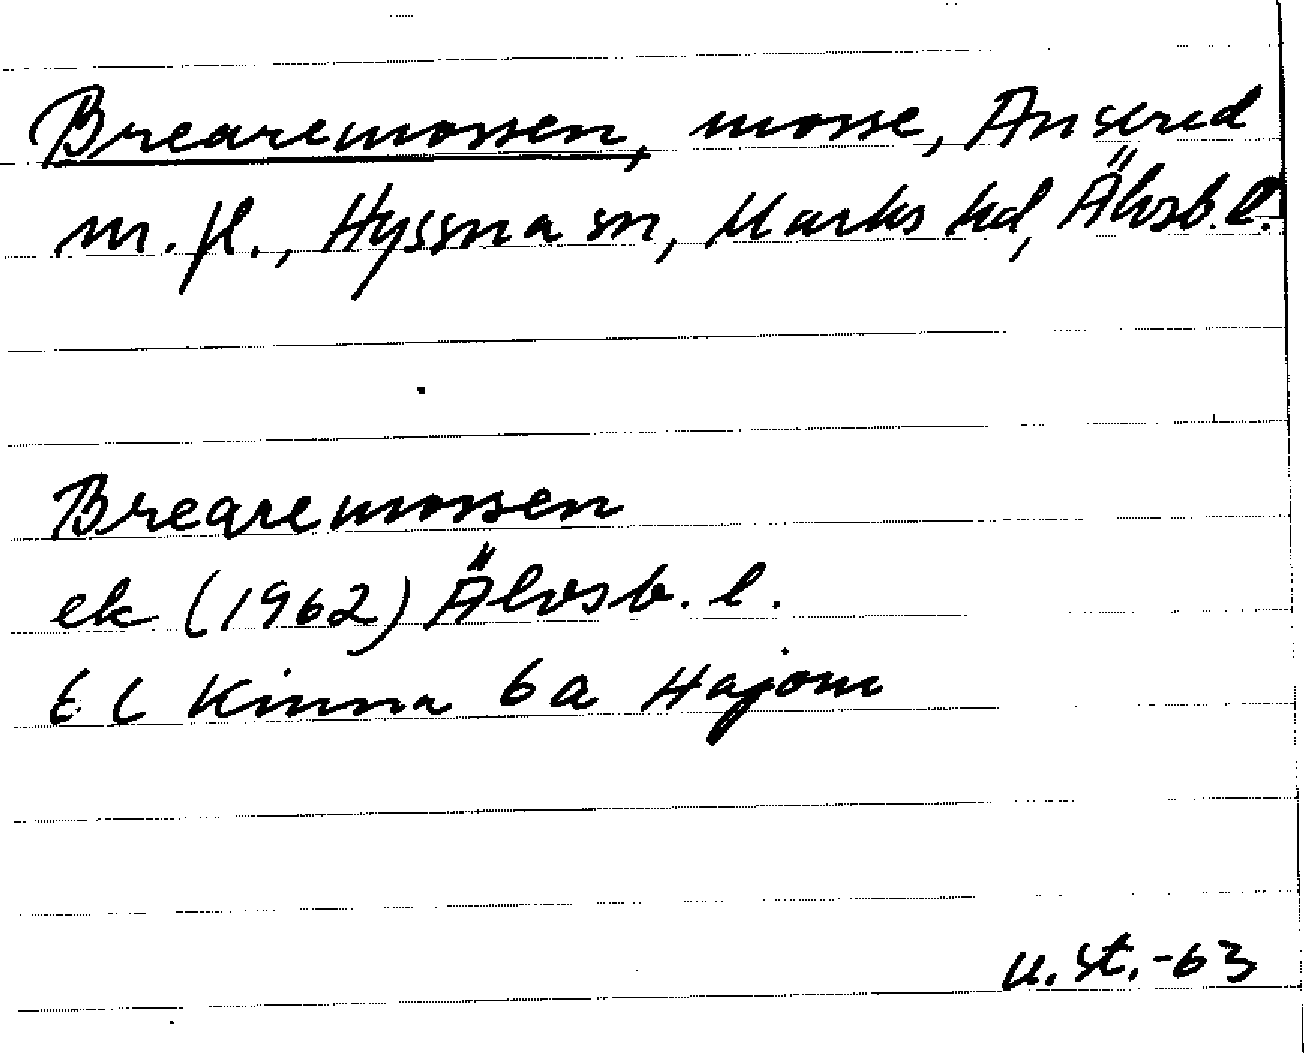 Brearemossen, mosse, Ansered
m.fl., Hyssna sn, Marks hd, Älvsb.l.
Brearemossen
ek (1962) Älvsb. l.
6 C Kinna 6a Hajom
u.st.-63